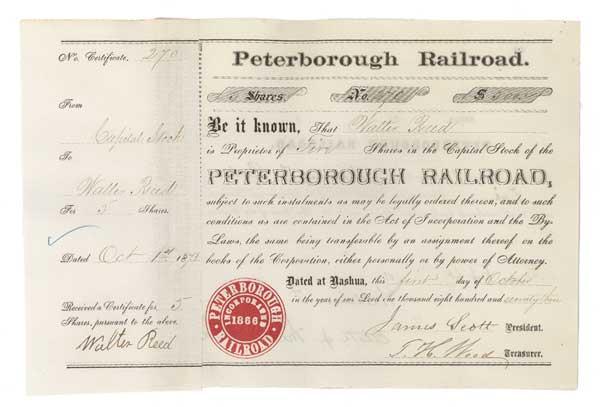 No. Certificate, 270
From
Capital Stock
To
Walter Reed
For 5 Shares.
Dated Oct 1st 187
Received a Certificate for 5
Shares, pursuant to the above.
Walter Reed
Peterborough Railroad.
5 Shares No. 270 $ 500
Be it known, That Walter Reed
is Proprietor of Five Shares in the Capital Stock of the
PETERBOROUGH RAILROAD,
subject to such instalments as may be legally ordered thereon, and to such
conditions as are contained in the Act of Incorporation and the By-
Laws, the same being transferable by an assignment thereof on the
books of the Corporation, either personally or by power of Attorney.
Dated at Nashua, this first day of October
in the year of our Lord one thousand eight hundred and seventy
James Scott President.
Treasurer.
PETERBOROUGH
INCORPORATED
1866
RAILROAD